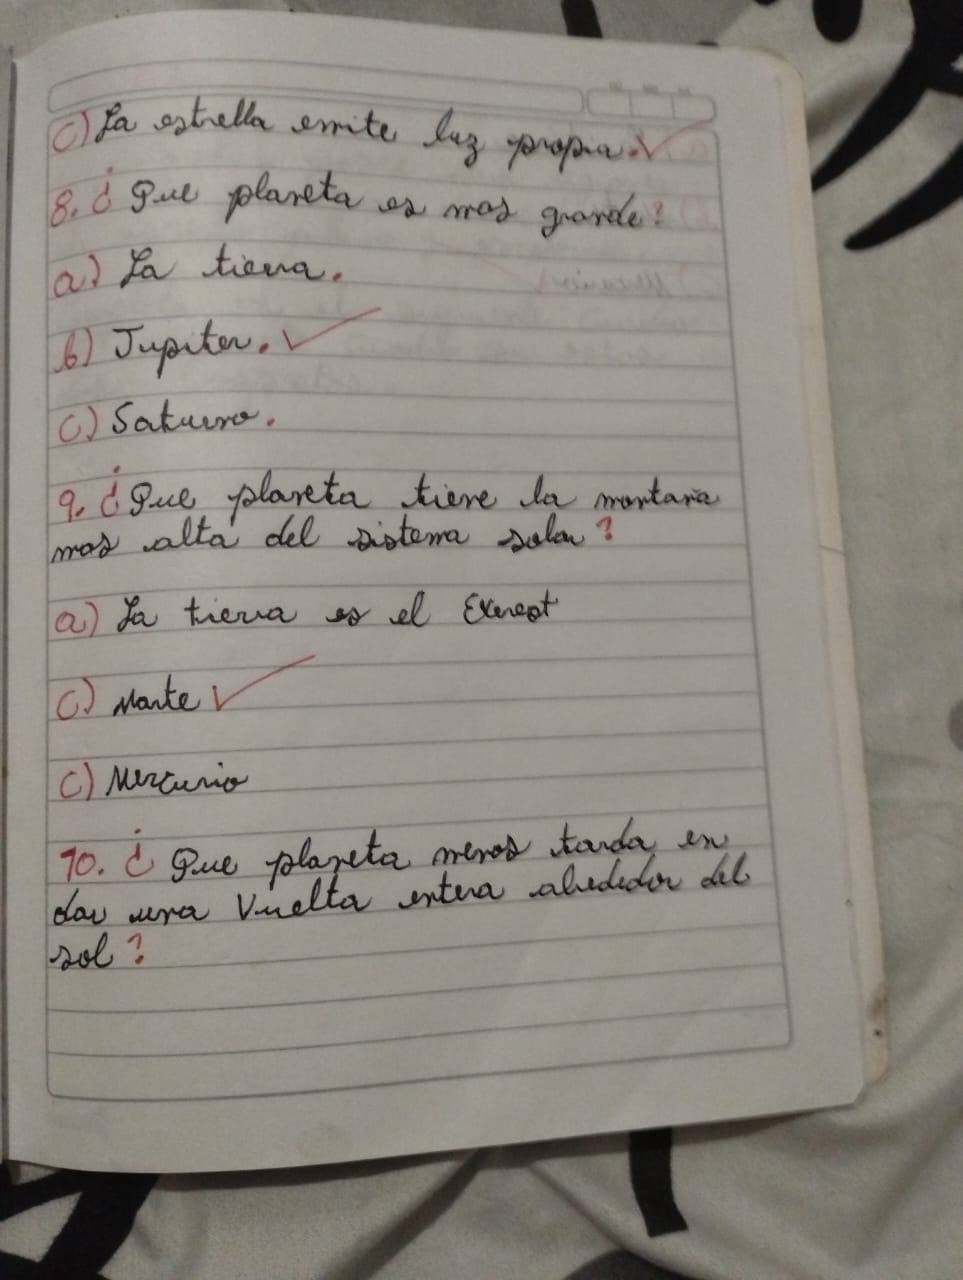 C) La estrella emite luz propia.
8. ¿Que planeta es mas grande?
a) La tierra.
b) Jupiter.
C) Saturno.
9. ¿Que planeta tiene la montaña
mas alta del sistema solar?
a) La tierra es el Everest
C) Marte
C) Mercurio
10. ¿Que planeta menos tarda en
dar una Vuelta entera alrededor del
sol?